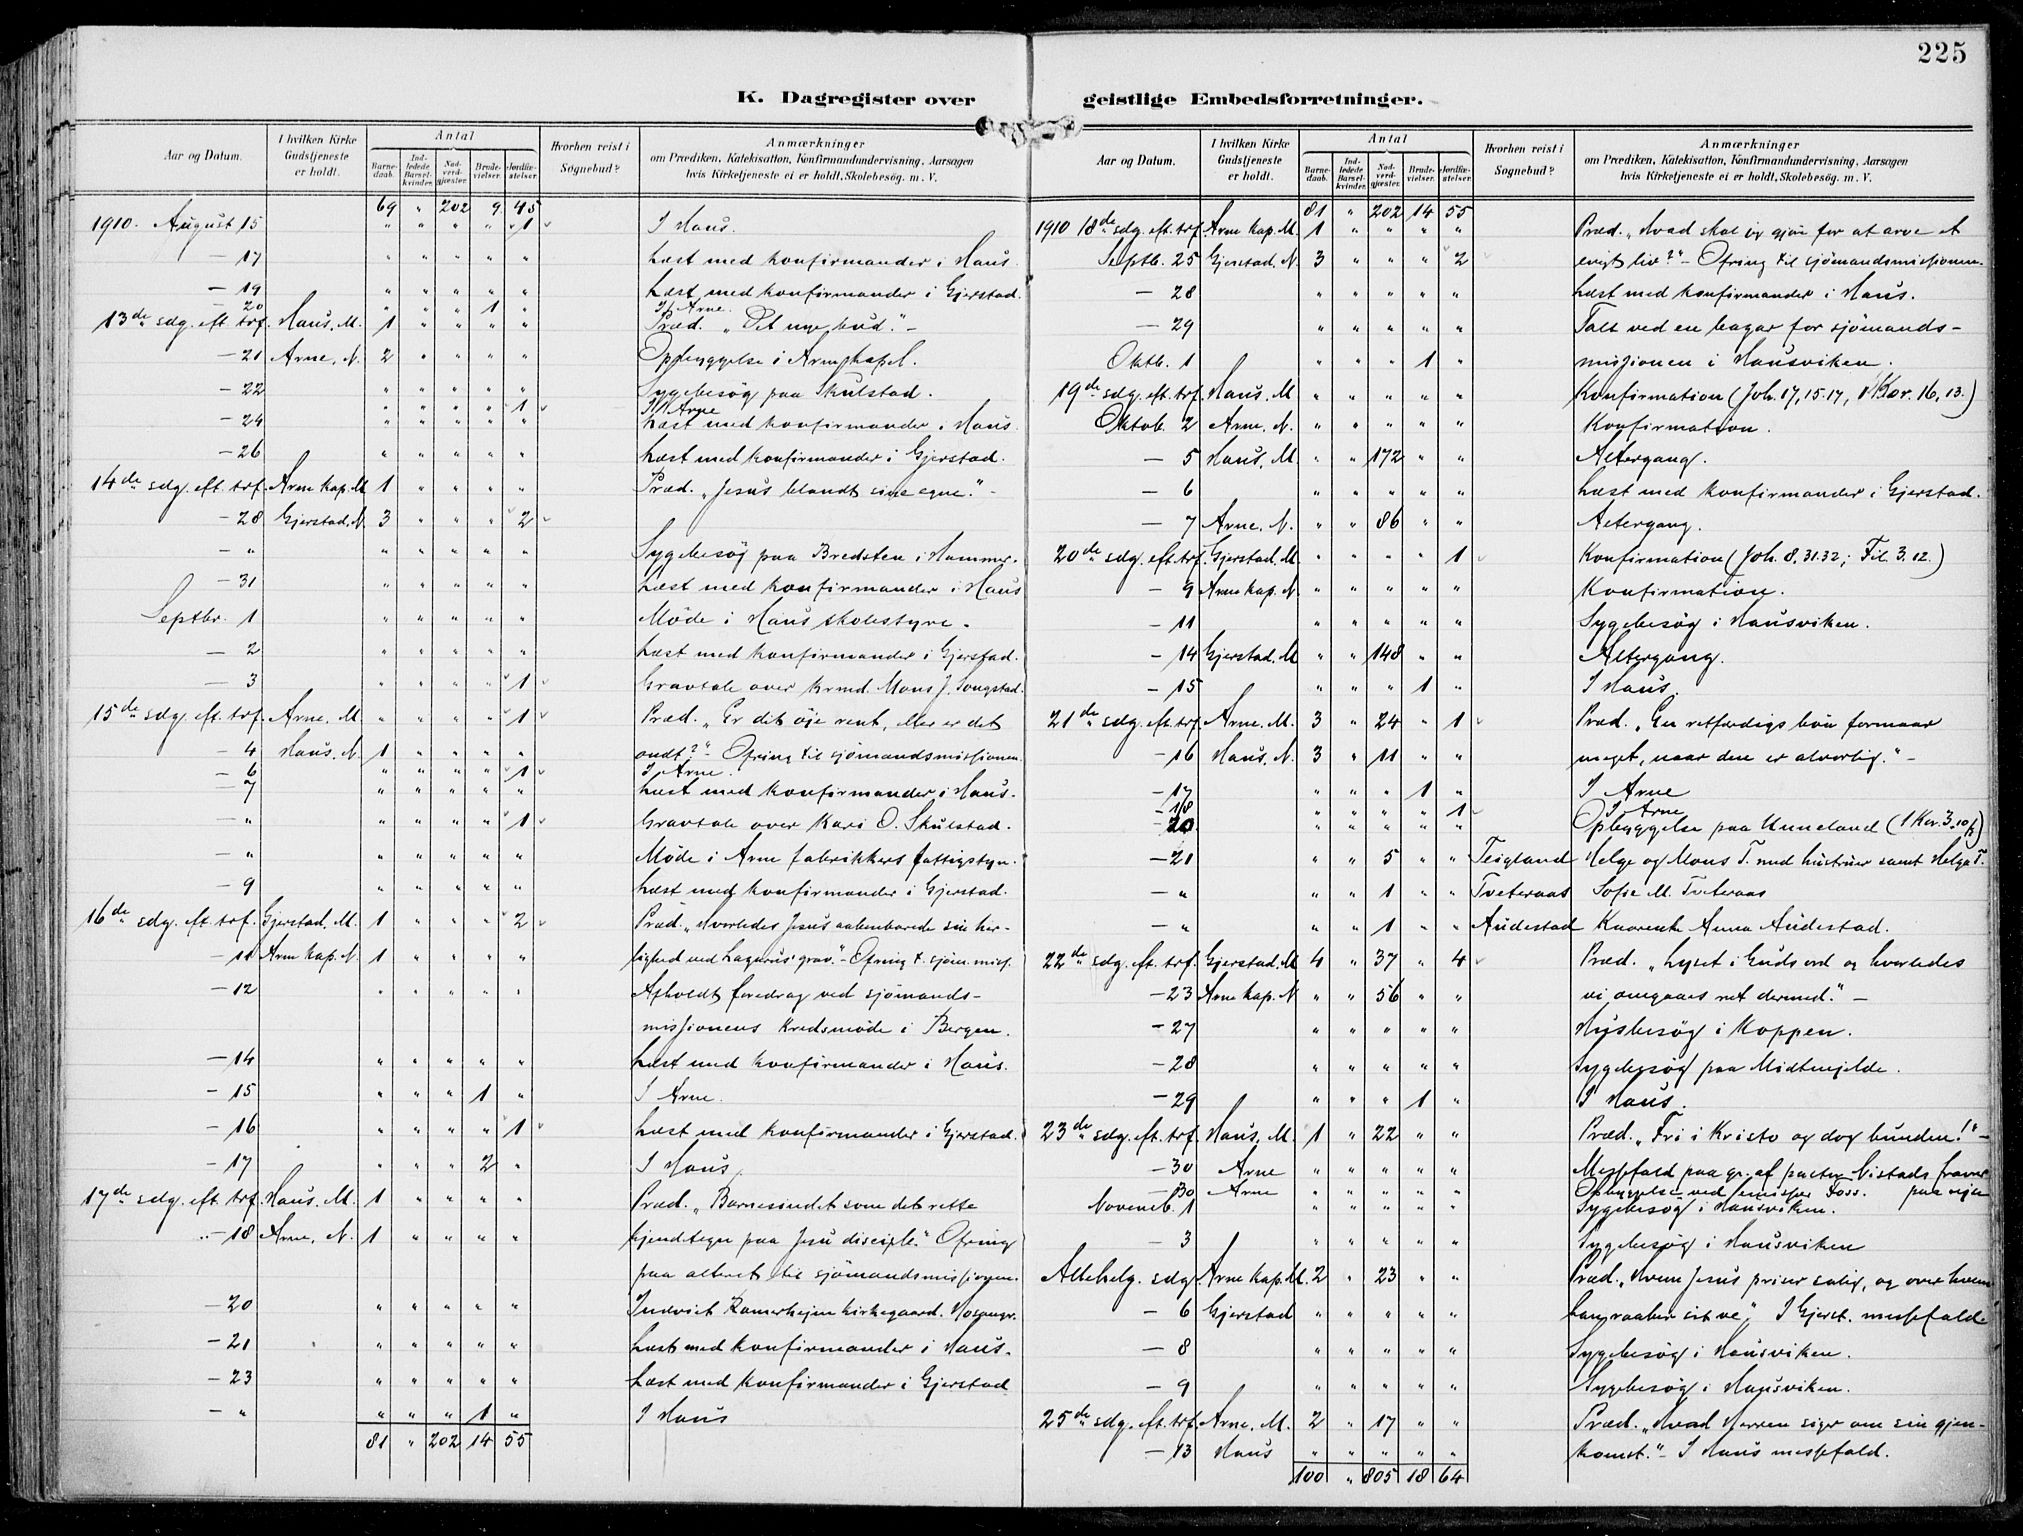 225
K. Dagregister over geistlige Embedsforretninger.
Aar og Datum. | I hvilken Kirke Gudstjeneste er holdt. | Antal | Barnedaab. | Indledede Barselkvinder. | Nadverdgjæster. | Brudevielser. | Jordfæstelser. | Hvorhen reist i Søgnebud? | Anmærkninger om Prædiken, Katekisation, Konfirmandundervisning, Aarsagen hvis Kirketjeneste ei er holdt, Skolebesøg. m. V.
69 " 202 9 45
1910. August 15 " " " " 1 I Haus.
— 17 " " " " " Læst med konfirmander i Haus.
— 19 " " " " " Læst med konfirmander i Gjerstad.
— 20 " " " 1 " I Arne.
13de sdg. eft. trf. Haus. M. 1 " " " " Præd. "Det nye bud." —
— 21 Arne, N. 2 " " " " Opbyggelse i Arne kapel.
— 22 " " " " " Sygebesøg paa Skulstad.
" " " " 1 I Arne
— 24 " " " " " Læst med konfirmander i Haus.
— 26 " " " " " Læst med konfirmander i Gjerstad.
14de sdg. eft. trf. Arne kap. M 1 " " " " Præd. "Jesus blandt sine egne." —
— 28 Gjerstad, N. 3 " " " 2
— " " " " " " Sygebesøg paa Bredsten i Hammer.
— 31 " " " " " Læst med konfirmander i Haus
Septbr. 1 " " " " " Møde i Haus skolestyre.
— 2 " " " " " Læst med konfirmander i Gjerstad.
— 3 " " " " 1 Gravtale over Mons J. Songstad.
15de sdg. eft. trf. Arne. M. " " " " 1 Præd. "Er dit øie rent, eller er det
— 4 Haus. N. 1 " " " " ondt?" Ofring til sjömandsmissionen.
— 6 " " " " 1 I Arne.
— 7 " " " " " Læst med konfirmander i Haus.
— " " " " " 1 Gravtale over Kari O. Skulstad.
— " " " " " " Møde i Arne fabrikkers fattigstyre.
— 9 " " " " " Læst med konfirmander i Gjerstad.
16de sdg. eft. trf. Gjerstad, M. 1 " " " 2 Præd. "Hvorledes Jesus aabenbarede sin her-
— 11 Arne kap. N. 1 " " " " lighed ved Lazarus' grav." — Ofring t. sjöm. miss.
— 12 " " " " " Afholdt foredrag ved sjömands-
missionens kredsmøde i Bergen.
— 14 " " " " " Læst med konfirmander i Haus.
— 15 " " " 1 " I Arne.
— 16 " " " " 1 Læst med konfirmander i Gjerstad.
— 17 " " " 2 " I Haus.
17de sdg. eft. trf. Haus. M. 1 " " " " Præd. "Barnesindet som det rette
— 18 Arne, N. 1 " " " " kjendetegn paa Jesu disciple." Ofring
paa alteret til sjömandsmissionen.
— 20 " " " " " Indviet kirkegaard.
— 21 " " " " " Læst med konfirmander i Haus.
— 23 " " " " " Læst med konfirmander i Gjerstad
— " " " " 1 " I Haus
81 " 202 14 55
Aar og Datum. | I hvilken Kirke Gudstjeneste er holdt. | Antal | Barnedaab. | Indledede Barselkvinder. | Nadverdgjæster. | Brudevielser. | Jordfæstelser. | Hvorhen reist i Søgnebud? | Anmærkninger om Prædiken, Katekisation, Konfirmandundervisning, Aarsagen hvis Kirketjeneste ei er holdt, Skolebesøg. m. V.
81 " 202 14 55
1910 18de sdg. eft. trf. Arne kap. M. 1 " " " " Præd. "Hvad skal jeg gjøre for at arve et
Septb. 25 Gjerstad, N. 3 " " " 2 evigt liv?" — Ofring til sjömandsmissionen.
— 28 " " " " " Læst med konfirmander i Haus.
— 29 " " " " " Talt ved en bazar for sjömands-
Oktb. 1 " " " 1 " missionen i Hausviken.
19de sdg. eft. trf. Haus. M " " " " " Konfirmation (Joh. 17, 15.17, 1 Kor. 16, 13.)
Oktob. 2 Arne. N. " " " " " Konfirmation.
— 5 Haus, M " " 172 " " Altergang.
— 6 " " " " " Læst med konfirmander i Gjerstad.
— 7 Arne. N. " " 86 " " Altergang.
20de sdg. eft. trf. Gjerstad. M " " " " 1 Konfirmation (Joh. 8, 31.32; Fil. 3. 12.)
— 9 Arne kap. N. " " " " " Konfirmation.
— 11 " " " " " Sygebesøg i Hausviken.
— 14 Gjerstad. M " " 148 " " Altergang.
— 15 " " " 1 " I Haus.
21de sdg. eft. trf. Arne. M. 3 " 24 " 1 Præd. "En retfærdigs bön formaar
— 16 Haus. N. 3 " 11 " " meget, naar den er alvorlig." —
— 17 " " " 1 " I Arne
— 18 " " " " 1 I Arne
— 20. " " " " " Opbyggelse paa Unneland (1 Kor. 3. 10 f)
— 21 " " 5 " " Teigland Helge og Mons T. med hustruer samt Helga T.
— " " " 1 " " Tveteraas Sofie M. Tveteraas
— " " " 1 " " Audestad Anna Audestad.
22de sdg. eft. trf. Gjerstad. M 4 " 37 " 4 Præd. "Lyset i Guds ord og hvorledes
— 23 Arne kap. N " " 56 " " vi omgaaes ret dermed." —
— 27 " " " " " Husbesøg i Koppen.
— 28 " " " " " Sygebesøg paa Midtmjelde.
— 29 " " " 1 " I Haus.
23de sdg. eft. trf. Haus, M. 1 " 22 " " Præd. "Fri i Kristo og dog bunden!" —
— 30 Arne " " " " " Messefald paa gr. af pastor Vistads fravær
— 30 Arne " " " " " Opbyggelse ved Foss. paa reise
Novemb. 1 " " " " " Sygebesøg i Hausviken.
— 3 " " " " " Sygebesøg i Hausviken
Allehelg. sdg Arne kap. M. 2 " 23 " " Præd. "Hvem Jesus priser salig, og over hvem
— 6 Gjerstad " " " " " han raaber sit ve". I Gjerst. messefald.
— 8 " " " " " Sygebesøg i Hausviken.
— 9 " " " " " Sygebesøg i Hausviken.
25de sdg. eft. trf. Arne, M. 2 " 17 " " Præd. "Hvad Herren siger om sin gjen-
— 13 Haus " " " " " komst." — I Haus messefald.
100 " 805 18 64